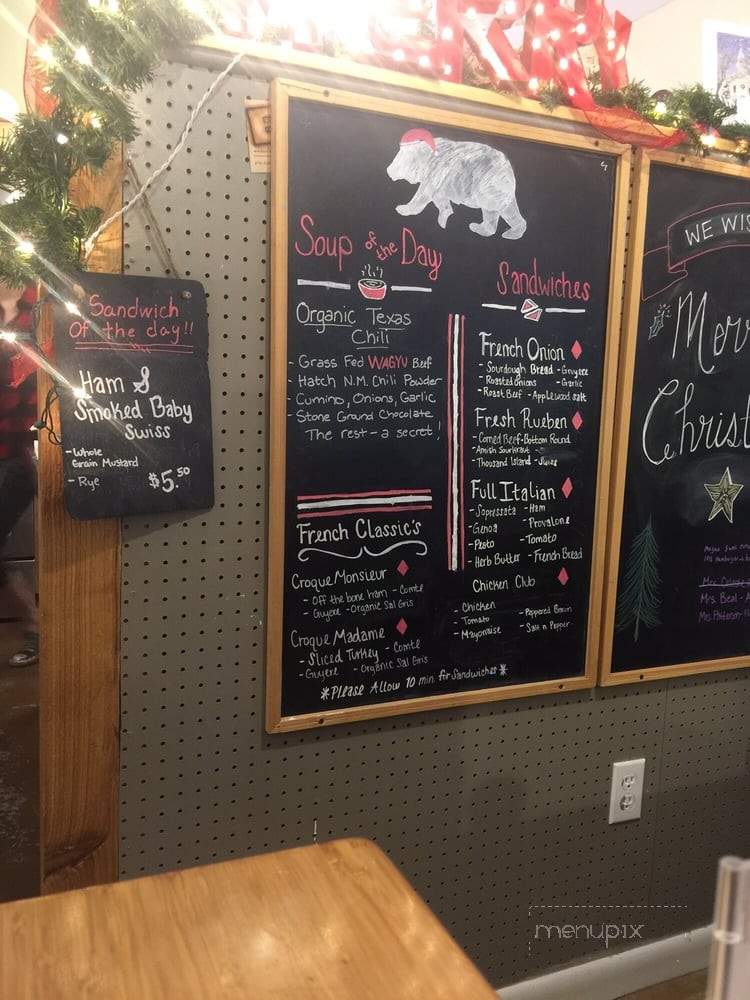 Sandwich
Of the day!!
Ham &
Smoked Baby
Swiss
- Whole
Grain Mustard
- Rye
$5.50
Soup of the Day
Organic Texas
Chili
- Grass Fed WAGYU Beef
- Hatch N.M. Chili Powder
- Cumino, Onions, Garlic
- Stone Ground Chocolate
The rest - a secret!
French Classic's
Croque Monsieur
- Off the bone ham - Comte
- Guyere - Organic Sal Gris
Croque Madame
- Sliced Turkey - Comte
- Guyere - Organic Sal Gris
Sandwiches
French Onion
- Sourdough Bread - Gruyere
- Roasted Onions - Garlic
- Roast Beef - Applewood Salt
Fresh Rueben
- Corned Beef - Bottom Round
- Amish Sourkraut -
- Thousand Island - Swiss
Full Italian
- Sopressata - Ham
- Genoa - Provalone
- Pesto - Tomato
- Herb Butter - French Bread
Chicken Club
- Chicken - Peppered Bacon
- Tomato
- Mayonaise - Salt n Pepper
*Please Allow 10 min. for Sandwiches*
WE WIS
Merr
Christ
Mrs Beal - A
Mrs. Patterson -
menupix